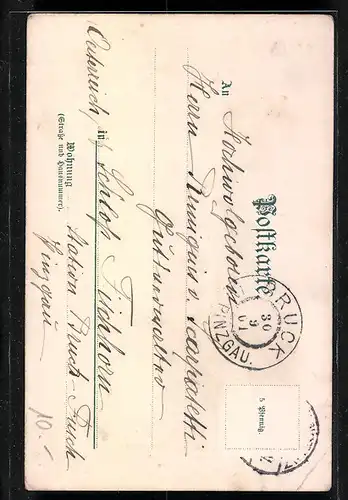 Postkarte
An
Hochwolgeboren
Herrn Remigius v.
Gutsverwalter
in Schloß Fischhorn
Station Bruck-Fusch
Pinzgau
Oesterreich,
Wohnung
(Straße und Hausnummer).
BRUCK
30
9
01
PINZGAU.
5 Pfennig.
10.-